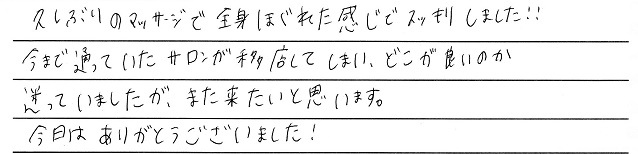 久しぶりのマッサージで全身ほぐれた感じでスッキリしました!!
今まで通っていたサロンが移店してしまい、どこが良いのか
迷っていましたが、また来たいと思います。
今日はありがとうございました!